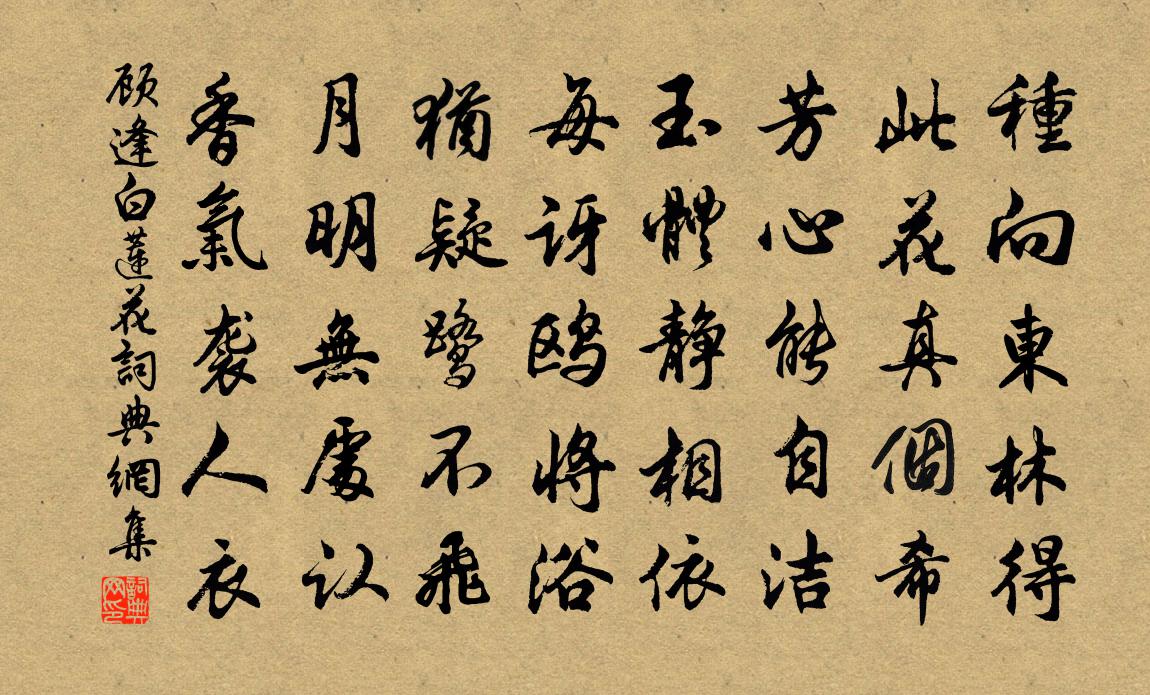 種向東林得
此花真個希
芳心能自洁
玉體靜相依
每讶鸥將浴
猶疑鹭不飛
月明無處认
香氣袭人衣
顾逢白蓮花詞典網集
詞典網印